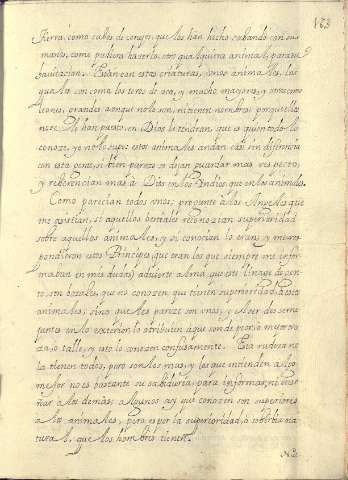 163
tierra, como cuebas de conejos, que los han hecho cabando con sus
manos, como pudiera hacerlo, otro qualquiera animal, para su
havitacion. Están con estas criaturas, unos animales, los
quales son como los toros de aca, y mucho mayores, y otros como
leones, grandes aunque no lo son, ni tienen nombres porque los
hombres no se le han puesto, en Dios le tendran, que es quien todo lo
conoze, yo no lo supe: estos animales andan casi sin distincion
con esta gente, si bien pareze se dejan guardar mas respecto,
y reberencian mas a Dios en los Indios que en los animales.
Como parecian todos unos, pregunté a los Angeles que
me asistian, si aquellos bestiales reconozian superioridad
sobre aquellos animales, y si conocian lo eran, y me res-
pondieron estos Principes (que eran los que siempre me infor-
maban en mis dudas) advierte alma, que este linage de gen-
te, son bozales, que no conozen que tienen superioridad a estos
animales; sino que les pareze son unos, y al ser des seme-
jantes en lo exterior lo atribuien a que son de otro naturaleza
o talle, y esto lo conozen confusamente. Esta rudeza no
la tienen todos, pero son los mas, y los que entienden algo
mejor no es bastante su sabiduria, para informar, ni ense-
ñar a los demas: algunos ay que conozen son superiores
a los animales, pero es por la superioridad, o soberbia na-
tural, que los hombres tienen.